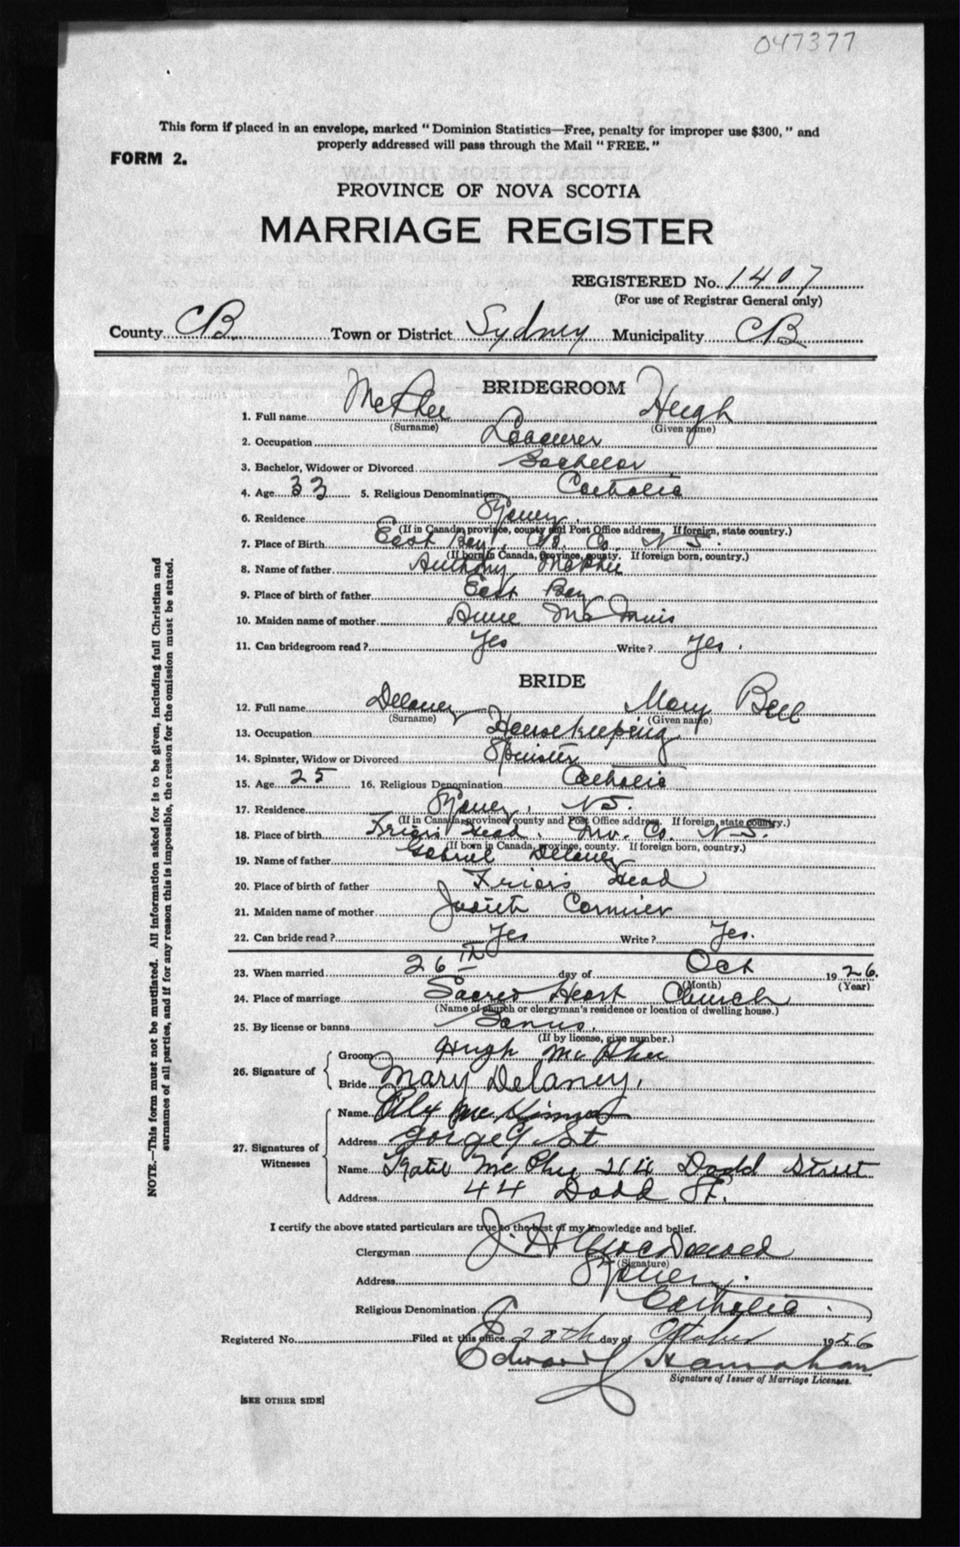 047377
This form if placed in an envelope, marked "Dominion Statistics—Free, penalty for improper use $300," and
properly addressed will pass through the Mail "FREE."
FORM 2.
PROVINCE OF NOVA SCOTIA
MARRIAGE REGISTER
REGISTERED No. 1407
(For use of Registrar General only)
County CB Town or District Sydney Municipality CB
BRIDEGROOM
1. Full name McPhee Hugh
(Surname) (Given name)
2. Occupation Labourer
3. Bachelor, Widower or Divorced Bachelor
4. Age 33 5. Religious Denomination Catholic
6. Residence Sydney
(If in Canada, province, county and Post Office address. If foreign, state country.)
7. Place of Birth East Bay, CB. Co. N S.
(If born in Canada, province, county. If foreign born, country.)
8. Name of father Anthony McPhee
9. Place of birth of father East Bay
10. Maiden name of mother Annie
11. Can bridegroom read? Yes Write? Yes.
BRIDE
12. Full name Delaney Mary Bell
(Surname) (Given name)
13. Occupation Housekeeping
14. Spinster, Widow or Divorced Spinster
15. Age 25 16. Religious Denomination Catholic
17. Residence Sydney, N S.
(If in Canada, province county and Post Office address. If foreign, state country.)
18. Place of birth Friar's Head. Inv. Co. N S.
(If born in Canada, province, county. If foreign born, country.)
19. Name of father Gabriel Delaney
20. Place of birth of father Friar's Head
21. Maiden name of mother Judith Cormier
22. Can bride read? Yes Write? Yes.
23. When married 26TH day of Oct 1926.
(Month) (Year)
24. Place of marriage Sacred Heart Church
(Name of church or clergyman's residence or location of dwelling house.)
25. By license or banns Banns.
(If by license, give number.)
26. Signature of
Groom Hugh McPhee
Bride Mary Delaney.
27. Signatures of Witnesses
Name Alex
Address George St
Name Katie McPhee Dodd Street
Address 44 Dodd St.
I certify the above stated particulars are true to the best of my knowledge and belief.
Clergyman J. H. MacDonald
(Signature)
Address Sydney.
Religious Denomination Catholic.
Registered No. Filed at this office day of October 19
Edward
Signature of Issuer of Marriage Licenses.
[SEE OTHER SIDE]
NOTE.—This form must not be mutilated. All information asked for is to be given, including full Christian and
surnames of all parties, and if for any reason this is impossible, the reason for the omission must be stated.